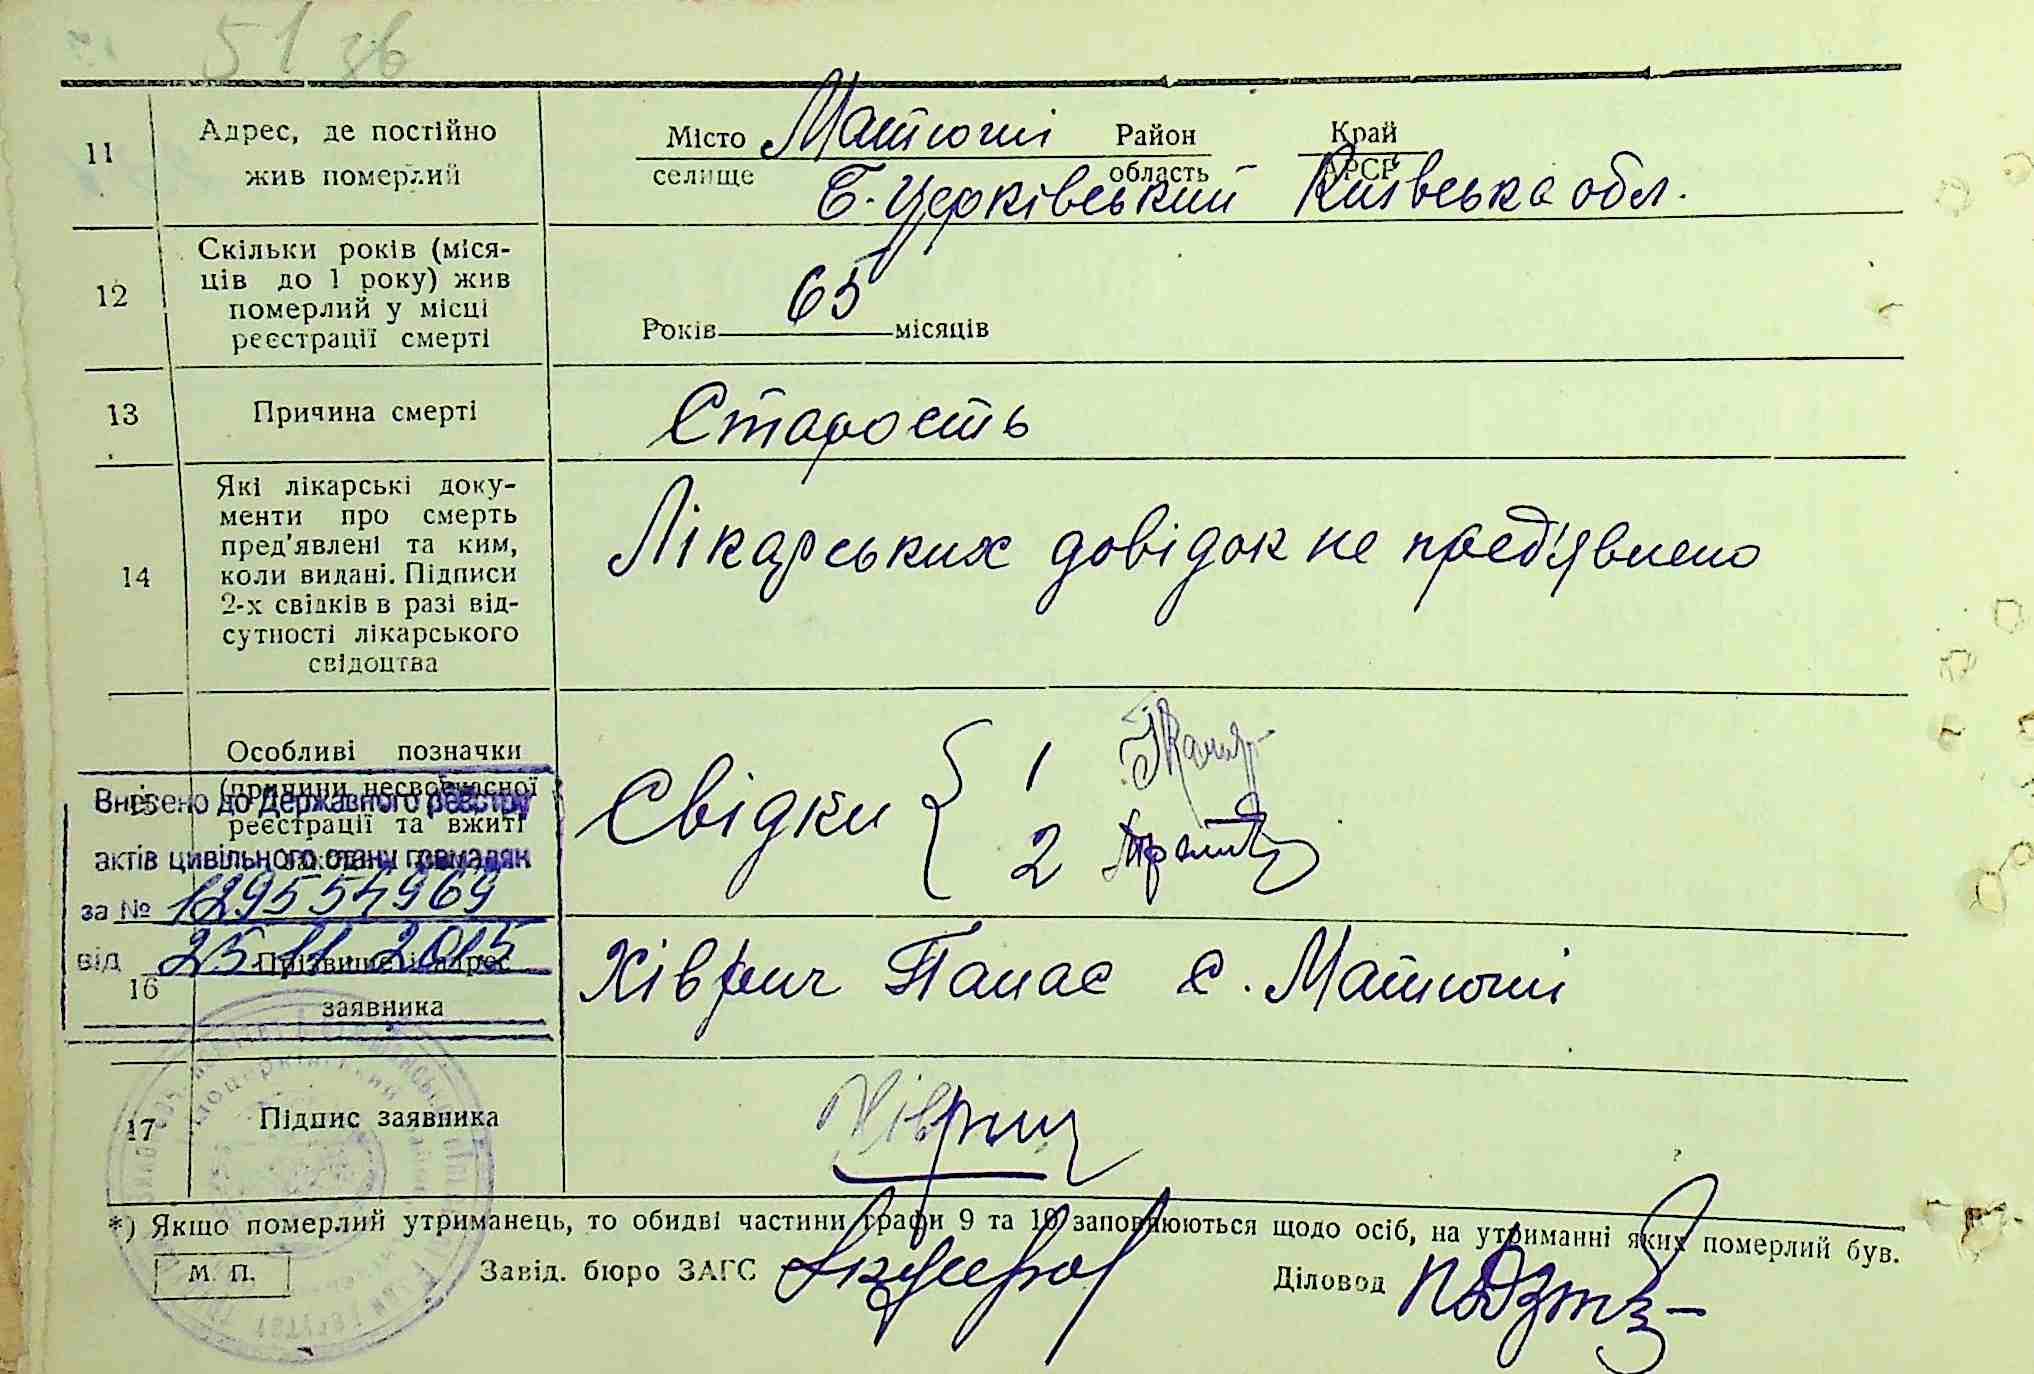 51 зв
11 Адрес, де постійно жив померлий
Місто селище Матюші Район область Край АРСР
Б. Церківський Київська обл.
12 Скільки років (міся-
ців до 1 року) жив
померлий у місці
реєстрації смерті
Років 65 місяців
13 Причина смерті Старость
14 Які лікарські доку-
менти про смерть
пред'явлені та ким,
коли видані. Підписи
2-х свідків в разі від-
сутності лікарського
свідоцтва
Лікарських довідок не пред'явлено
15 Особливі позначки
(причини несвоєчасної
реєстрації та вжиті
Свідки 1
2
Внесено до Державного реєстру
актів цивільного стану громадян
за №
від 25.11.2015
16 Прізвище і адрес
заявника
Хіврич Панас с. Матюші
17 Підпис заявника Хіврич
*) Якщо померлий утриманець, то обидві частини графи 9 та 10 заповнюються щодо осіб, на утриманні яких померлий був.
М. П. Завід. бюро ЗАГС Діловод